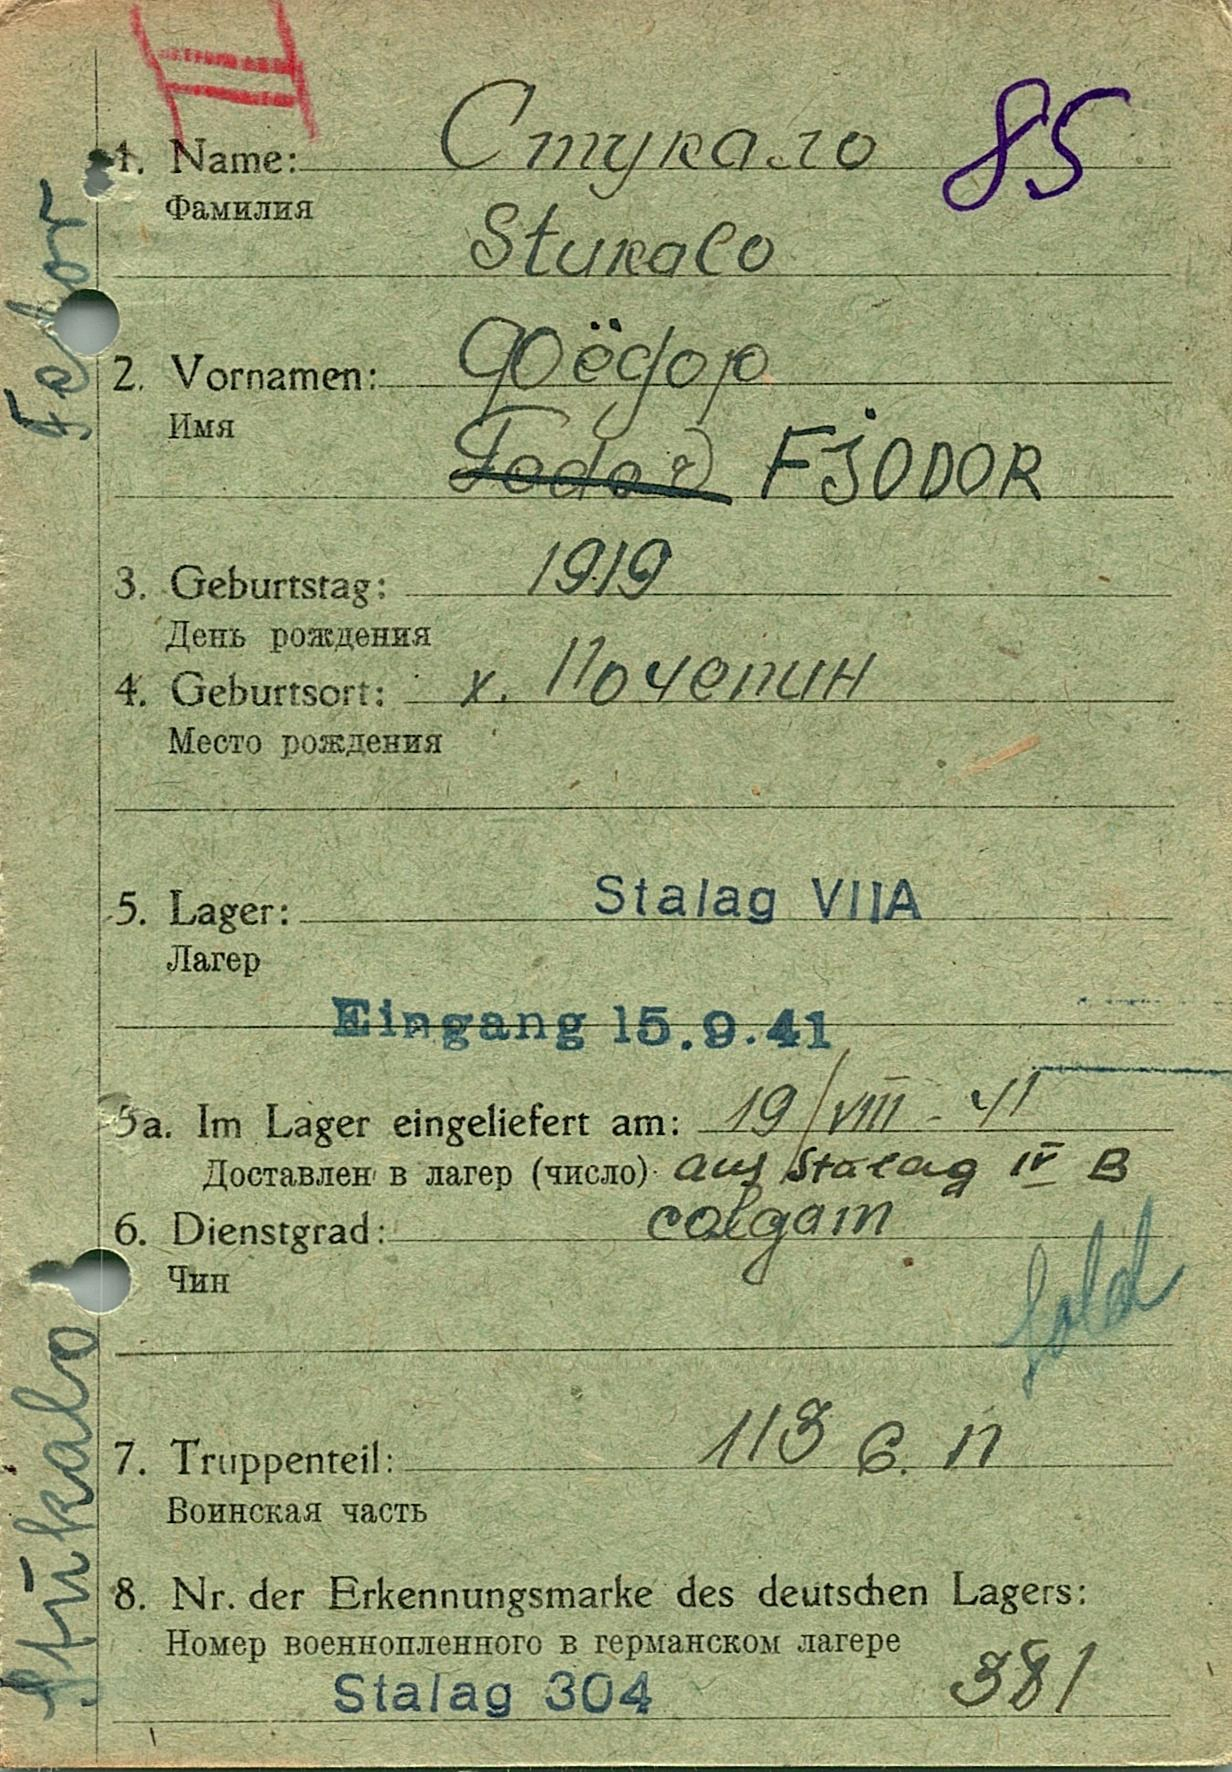 II
1. Name: Стукало 85
Фамилия
Stukalo
2. Vornamen: Фёдор
Имя
FJODOR
3. Geburtstag: 1919
День рождения
4. Geburtsort: х. Почепин
Место рождения
5. Lager: Stalag VIIA
Лагер
Eingang 15.9.41
5a. Im Lager eingeliefert am: 19/VIII-41
Доставлен в лагер (число) aus Stalag IV B
6. Dienstgrad: солдат
Чин
Sold
7. Truppenteil: 113 с. п
Воинская часть
8. Nr. der Erkennungsmarke des deutschen Lagers:
Номер военнопленного в германском лагере
Stalag 304 381
Stukalo Fedor